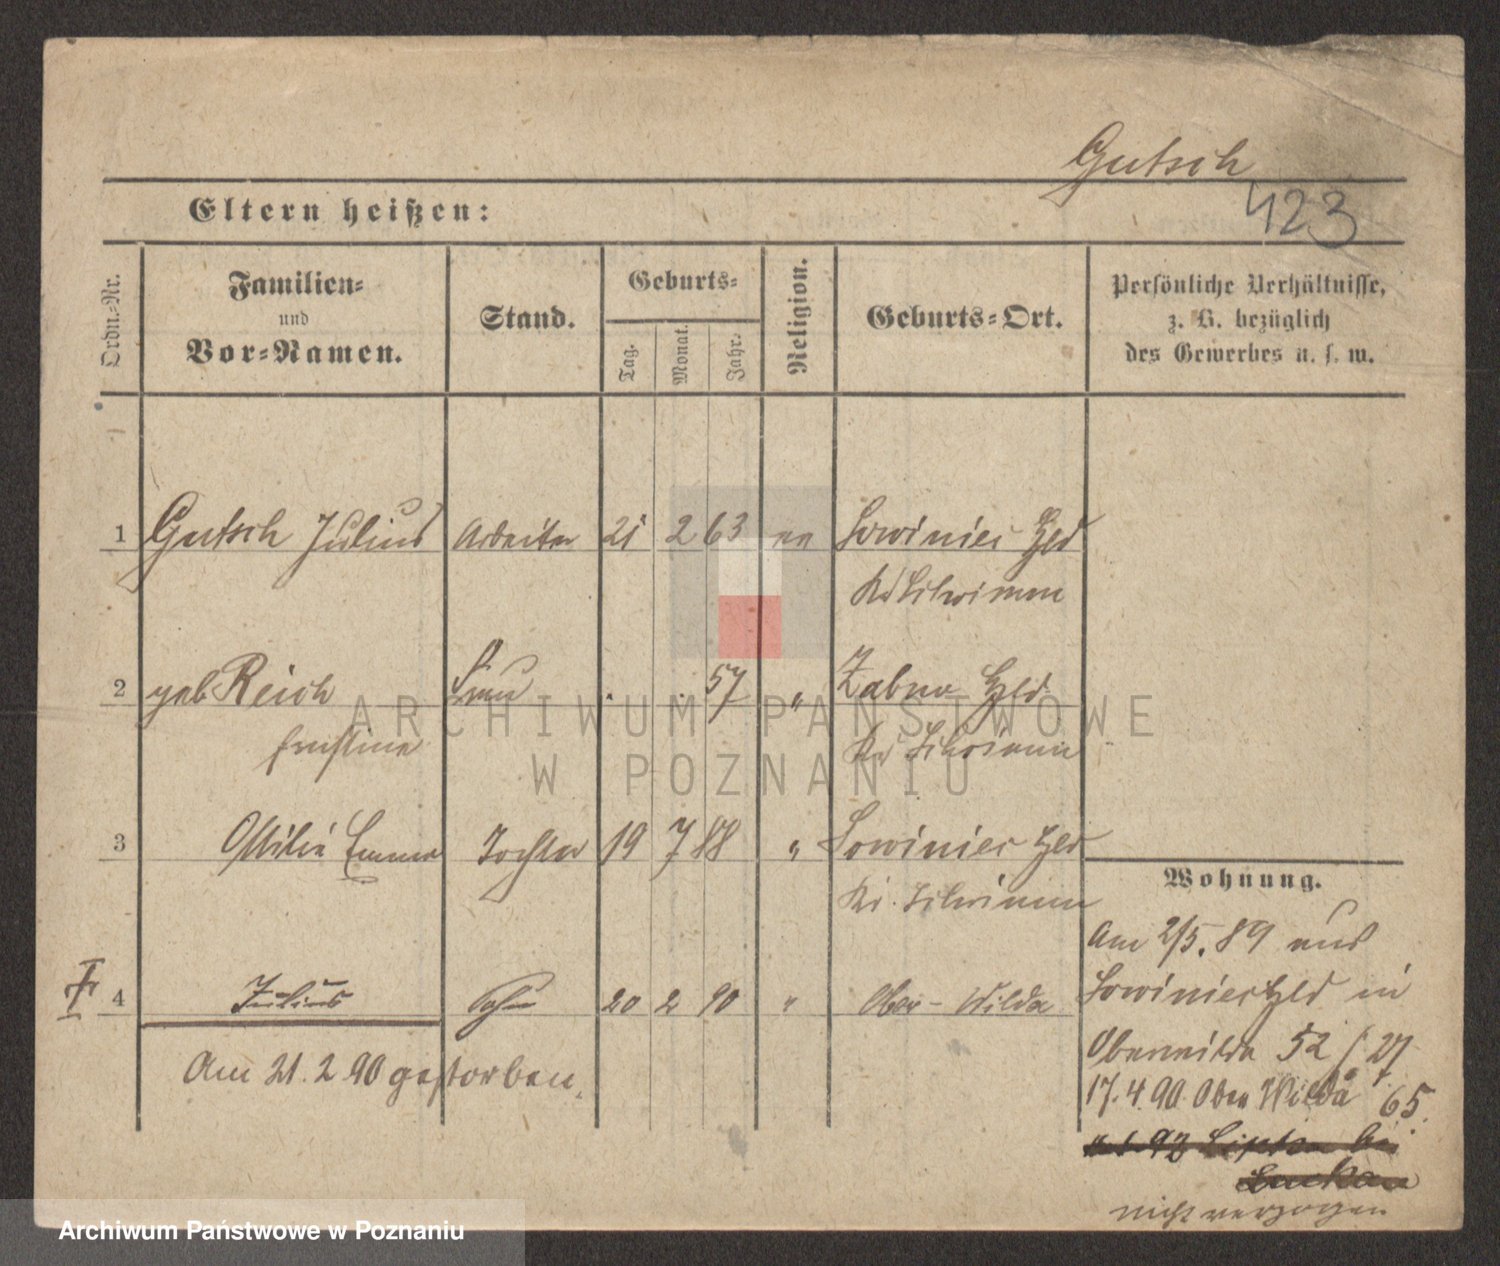 Gutsch
423
Eltern heißen:
Ordn.-Nr.
Familien-
und
Vor-Namen.
Stand.
Geburts-
Tag.
Monat.
Jahr.
Religion.
Geburts-Ort.
Persönliche Verhältnisse,
z. B. bezüglich
des Gewerbes u. s. w.
1 Gutsch Julius Arbeiter 21 2 63 ev Lowiniec Hld
Kr Schrimm
2 geb Reich Frau . . 57 " Zabno Hld.
Ernstine Kr Schrimm
3 Emma Tochter 19 7 88 " Lowiniec Hld
Kr. Schrimm
4 Julius Sohn 20 2 90 " Ober-Wilda
Am 21.2.90 gestorben.
Wohnung.
Am 2/5.89 aus
Lowiniec Hld in
Oberwilda 52 / 27
17.4.90. Ober Wilda 65.
92 bei
Luckau
nicht verzogen
ARCHIWUM PAŃSTWOWE
W POZNANIU
Archiwum Państwowe w Poznaniu